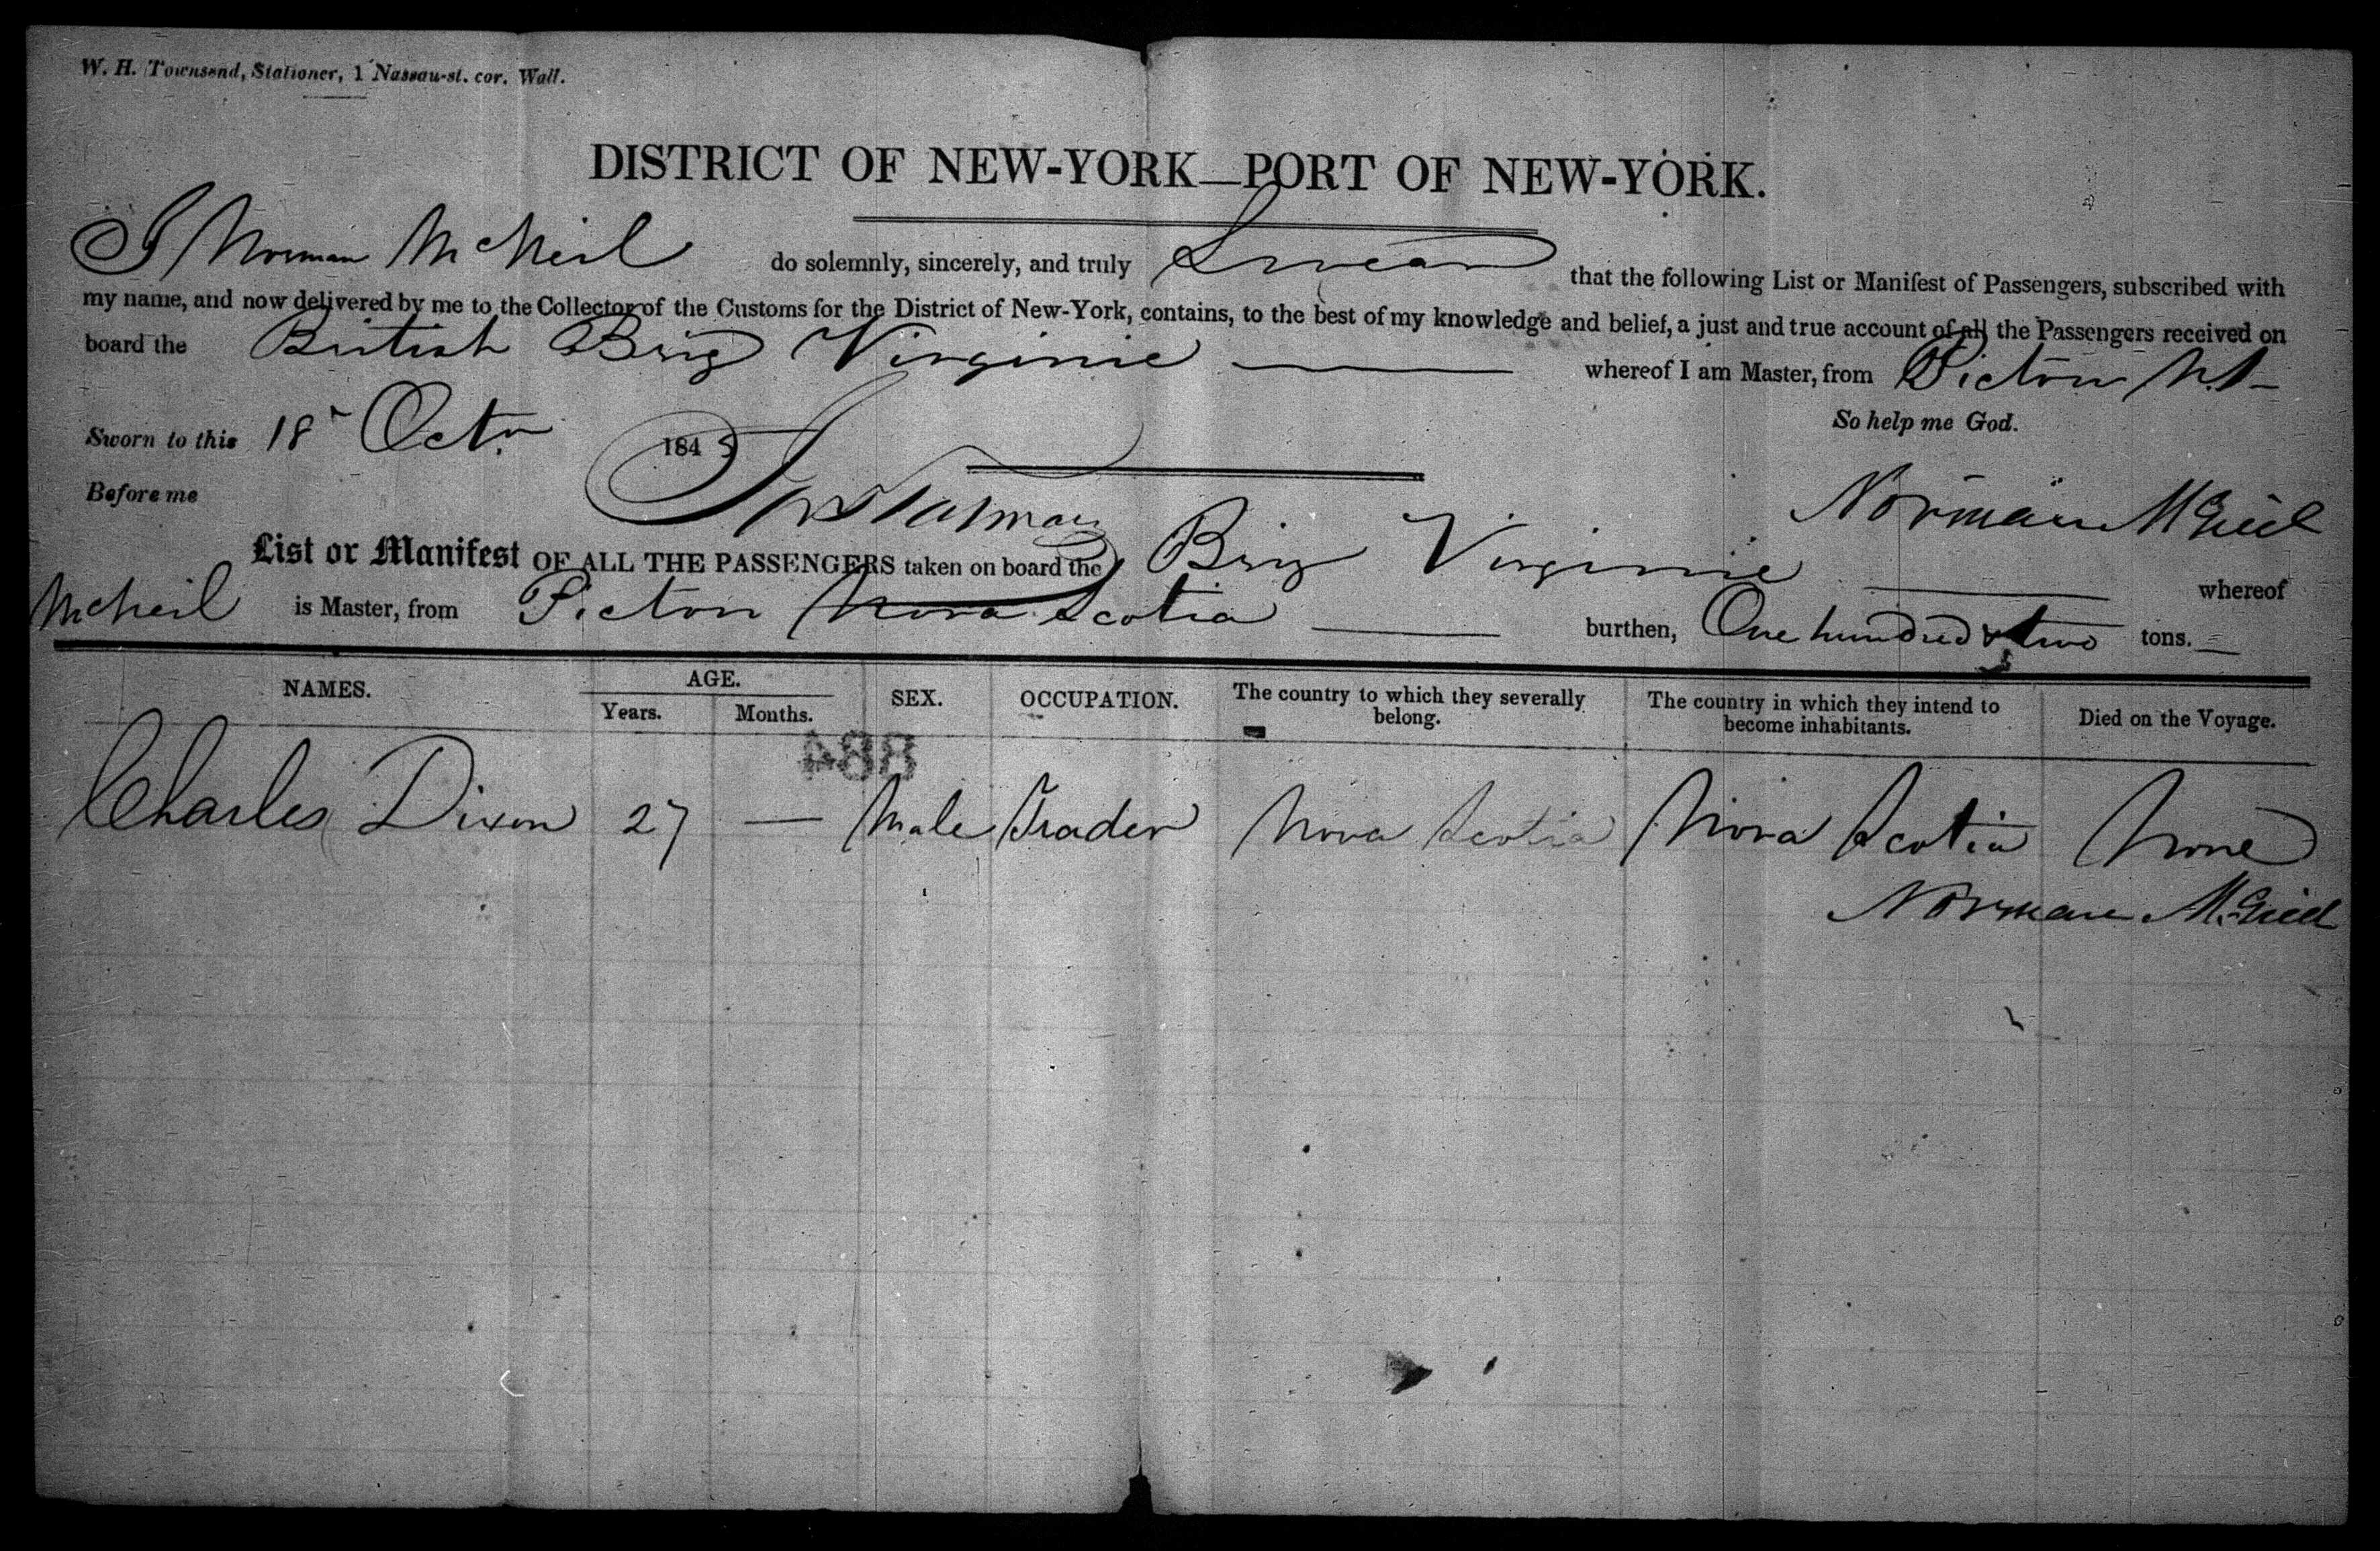 W. H. Townsend, Stationer, 1 Nassau-st. cor. Wall.
DISTRICT OF NEW-YORK—PORT OF NEW-YORK.
I Norman McNeil do solemnly, sincerely, and truly Swear that the following List or Manifest of Passengers, subscribed with
my name, and now delivered by me to the Collector of the Customs for the District of New-York, contains, to the best of my knowledge and belief, a just and true account of all the Passengers received on
board the British Brig Virginie whereof I am Master, from Pictou N.S
So help me God.
Sworn to this 18 Octr 1845
Before me
Norman McNeil
List or Manifest OF ALL THE PASSENGERS taken on board the Brig Virginie whereof
McNeil is Master, from Pictou Nova Scotia burthen, One hundred & two tons.
NAMES. AGE. SEX. OCCUPATION. The country to which they severally belong. The country in which they intend to become inhabitants. Died on the Voyage.
Years. Months.
488
Charles Dixon 27 — Male Trader Nova Scotia Nova Scotia None
Norman McNeil